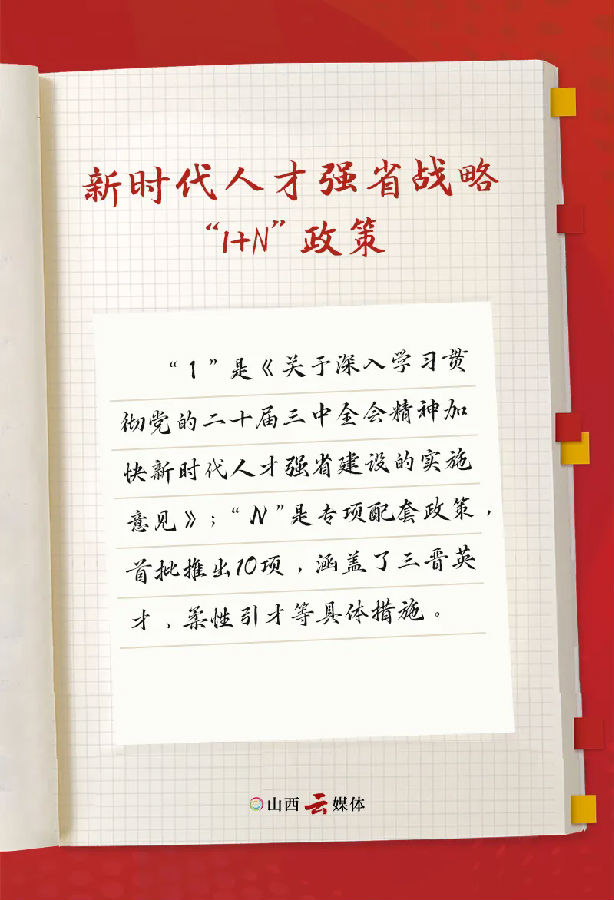 新时代人才强省战略
“1+N”政策
“1”是《关于深入学习贯
彻党的二十届三中全会精神加
快新时代人才强省建设的实施
意见》；“N”是专项配套政策，
首批推出10项，涵盖了三晋英
才，柔性引才等具体措施。
山西云媒体